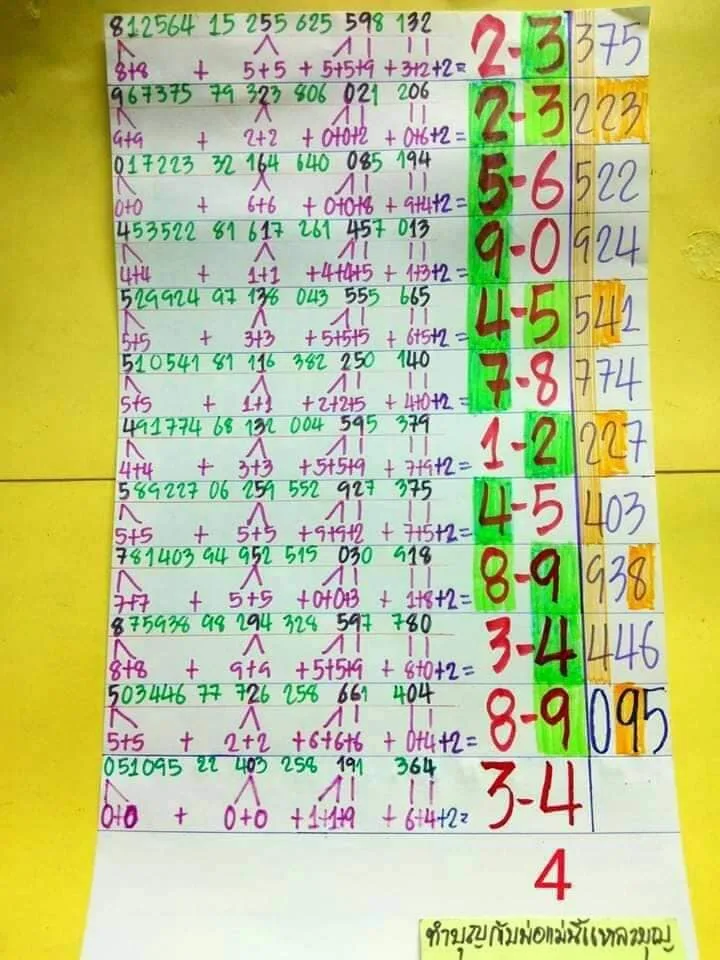 812564 15 255 625 598 132
8+8 + 5+5 + 5+5+9 + 3+2+2= 2-3 375
967375 79 323 806 021 206
9+9 + 2+2 + 0+0+2 + 0+6+2= 2-3 223
017223 32 164 640 085 194
0+0 + 6+6 + 0+0+8 + 9+4+2= 5-6 522
453522 81 617 261 457 013
4+4 + 1+1 +4+4+5 + 1+3+2= 9-0 924
529924 97 138 043 555 665
5+5 + 3+3 +5+5+5 + 6+5+2= 4-5 541
510541 81 116 382 250 140
5+5 + 1+1 +2+2+5 + 4+0+2= 7-8 774
491774 68 132 004 595 379
4+4 + 3+3 +5+5+9 + 7+9+2= 1-2 227
589227 06 259 552 927 375
5+5 + 5+5 +9+9+2 + 7+5+2= 4-5 403
781403 94 952 515 030 918
7+7 + 5+5 +0+0+3 + 1+8+2= 8-9 938
875938 98 294 328 597 780
8+8 + 9+9 +5+5+9 + 8+0+2= 3-4 446
503446 77 726 258 661 404
5+5 + 2+2 +6+6+6 + 0+4+2= 8-9 095
051095 22 403 258 191 364
0+0 + 0+0 +1+1+9 + 6+4+2= 3-4
4
ทำบุญกับพ่อแม่นี้แหละบุญ